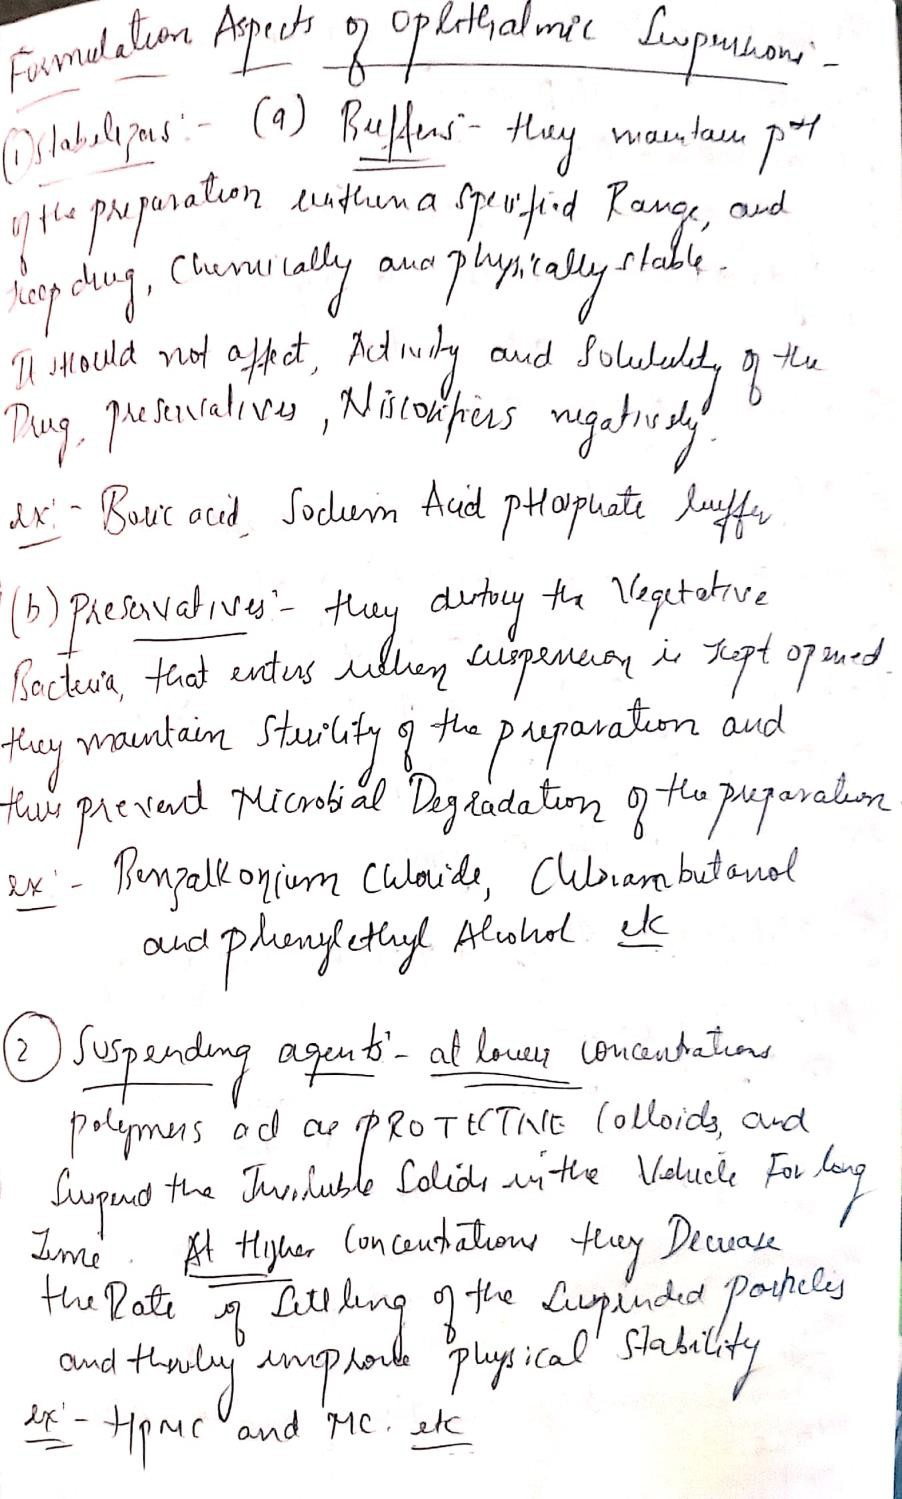 Formulation Aspects of Ophthalmic Suspensions -
① Stabelizers :- (a) Buffers - they maintain pH
of the preparation within a specified Range, and
keep drug, Chemically and physically stable.
It should not affect, Activity and Solubility of the
Drug, preservatives, Viscosifiers negatively.
ex :- Boric acid, Sodium Acid pHosphate buffer
(b) Preservatives :- they destroy the Vegetative
Bacteria, that enters when suspension is kept opened.
they maintain Sterility of the preparation and
thus prevent Microbial Degradation of the preparation.
ex :- Benzalkonium Chloride, Chlorambutanol
and phenylethyl Alcohol etc
② Suspending agents :- at lower concentrations
polymers act as PROTECTIVE Colloids, and
Suspend the Insoluble Solids in the Vehicle For long
Time. At Higher Concentrations they Decrease
the Rate of Settling of the Suspended particles
and thereby improve physical Stability
ex :- HPMC and MC. etc